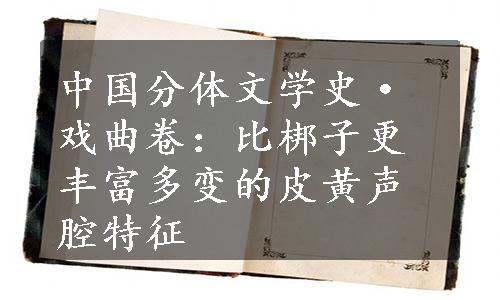 中国分体文学史·
戏曲卷：比梆子更
丰富多变的皮黄声
腔特征